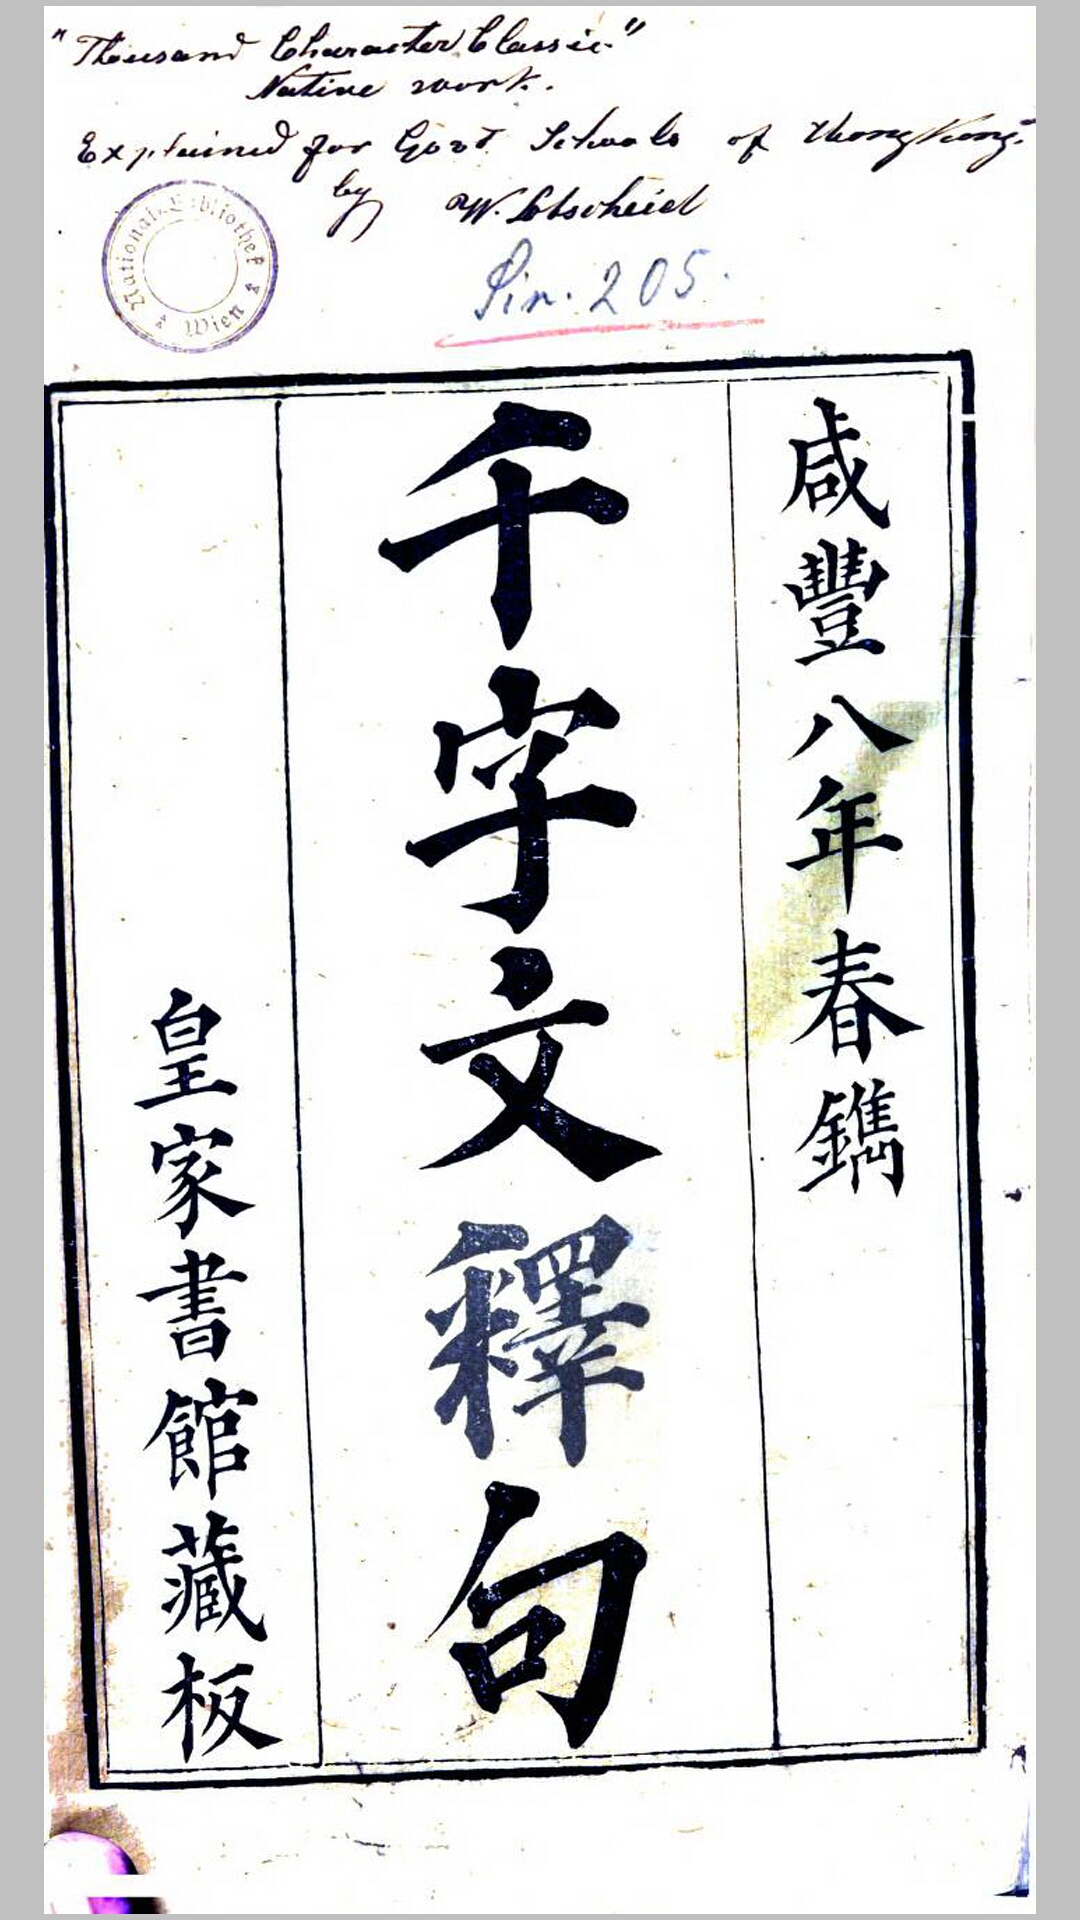 "Thousand Character Classic."
Native work.
Explained for Govt Schools of Hong Kong.
by W. Lobscheid
National-Bibliothek Wien
Sin. 205.
咸豐八年春鐫
千字文釋句
皇家書館藏板